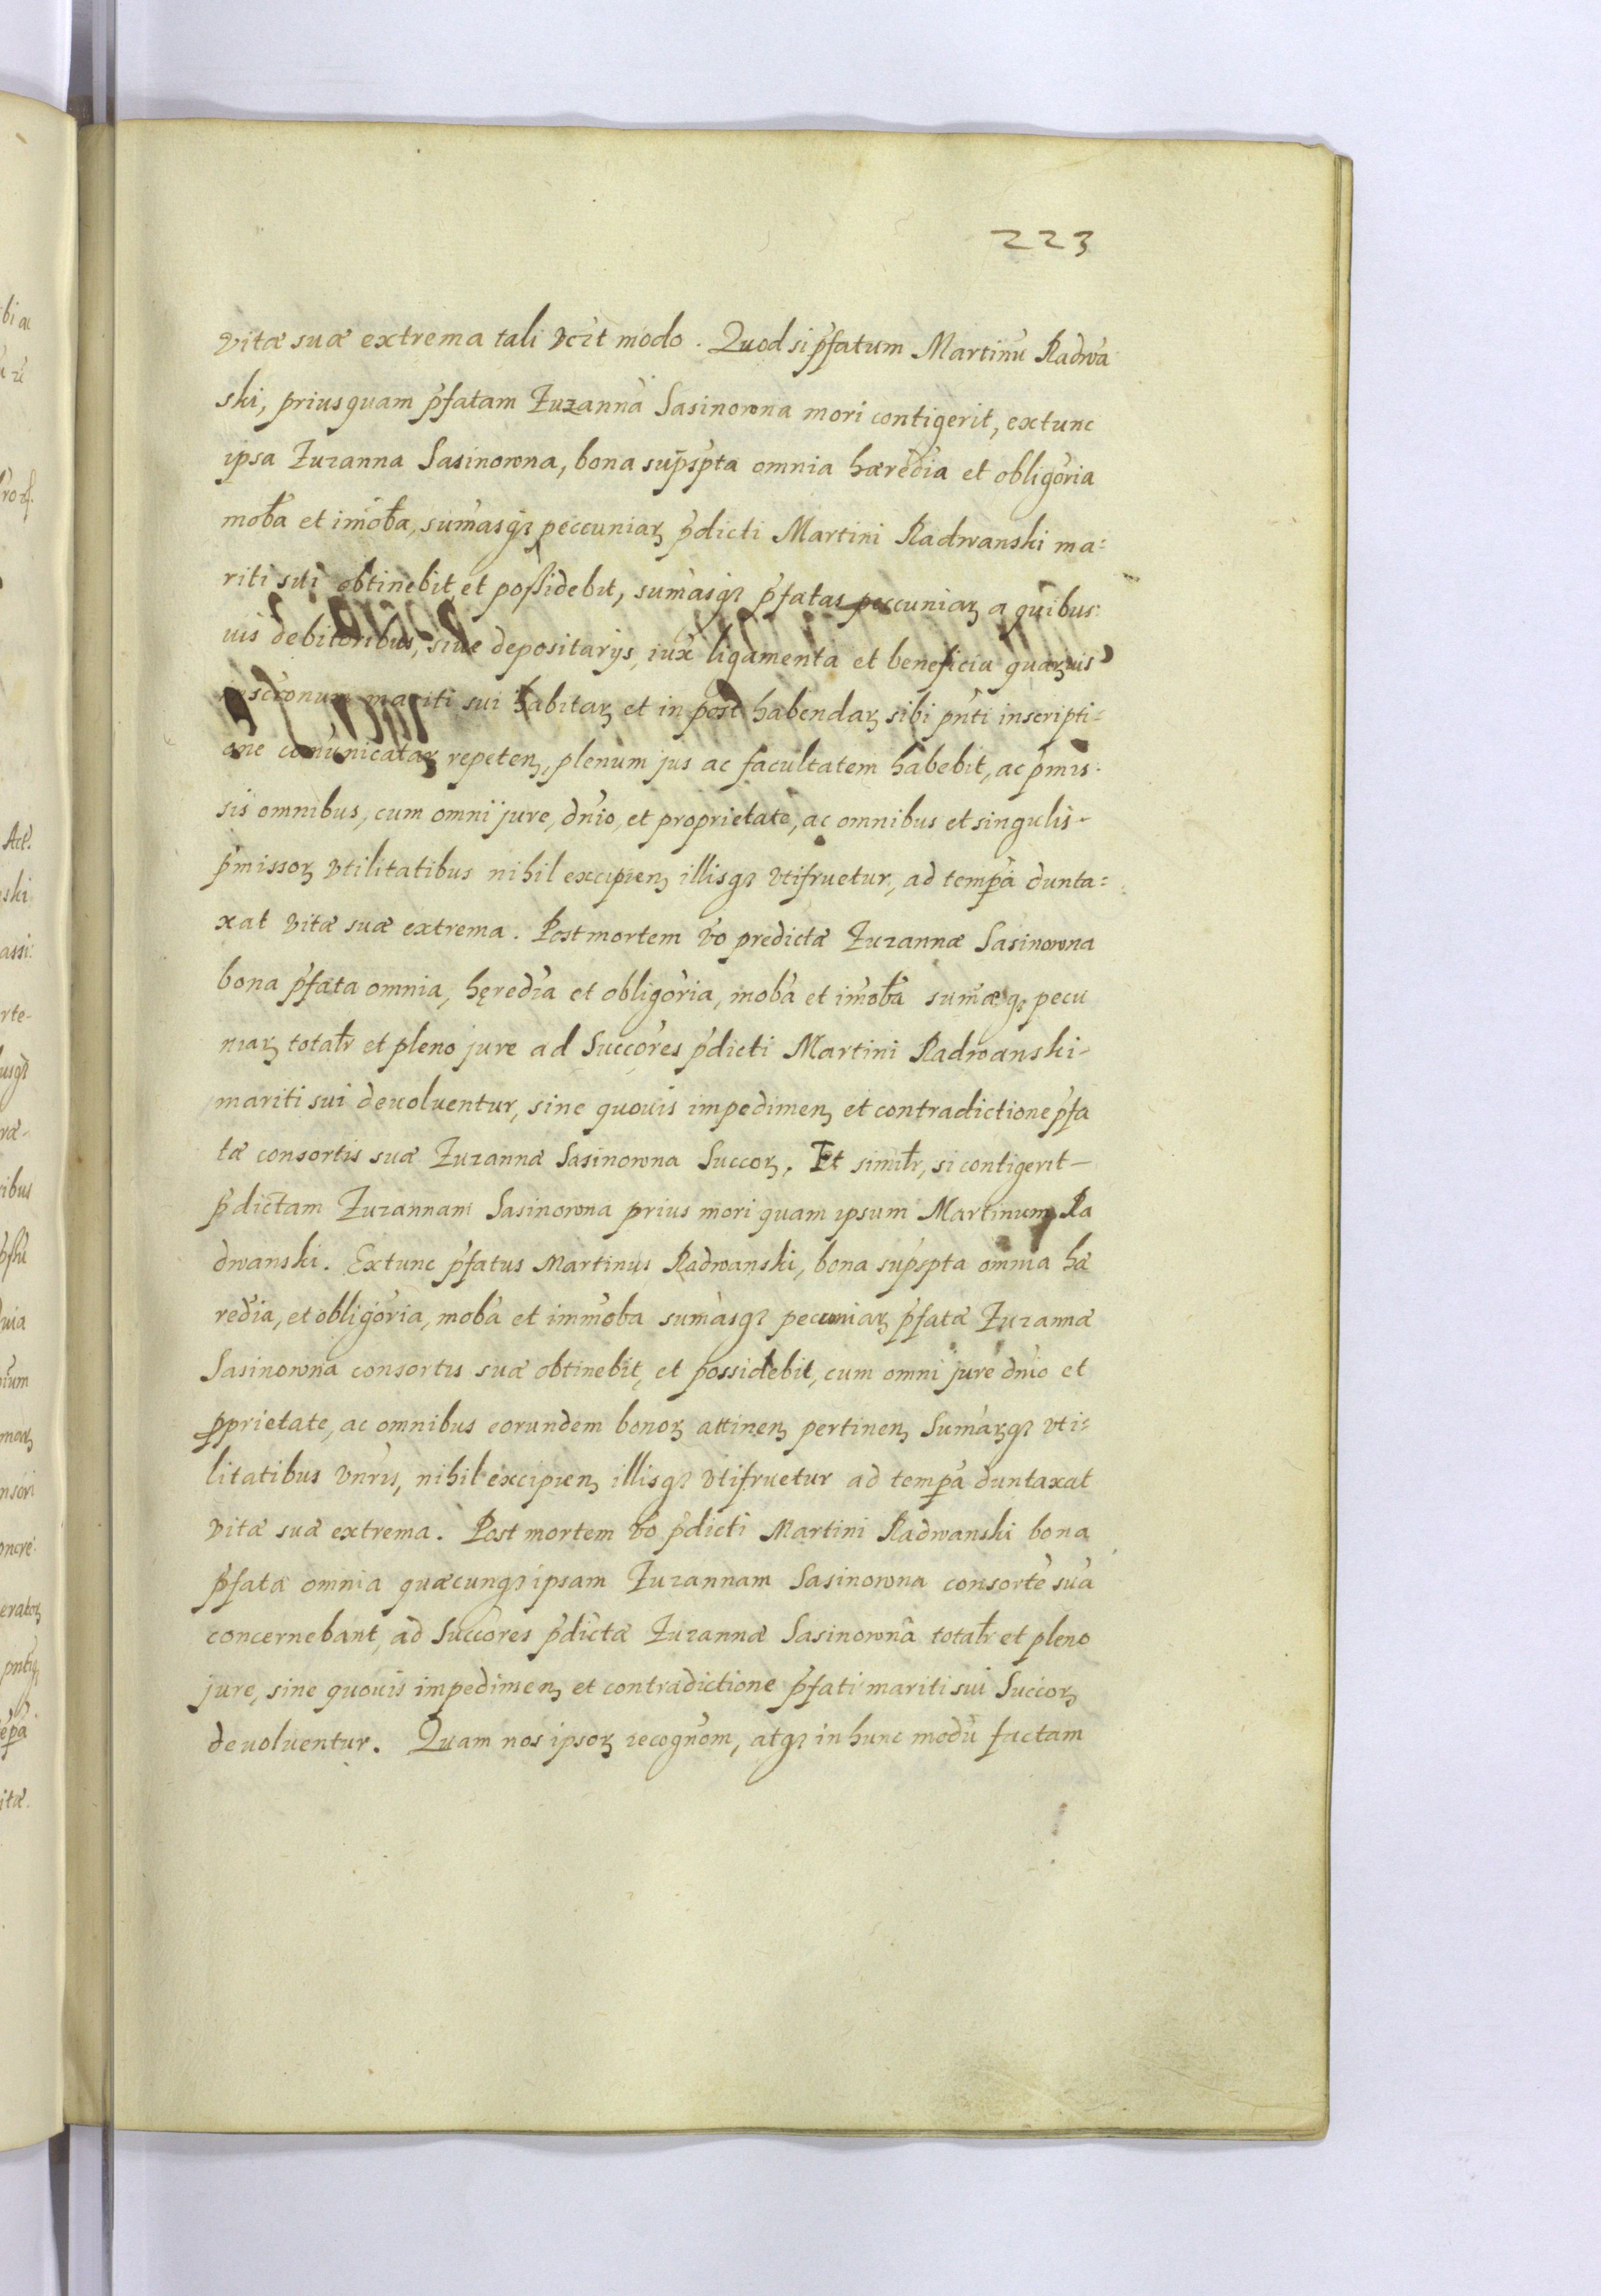 223
vitæ suæ extrema tali vczt modo. Quod si p̃fatum Martinũ Radwã
ski, priusquam p̃fatam Zuzannã Sasinowna mori contigerit, extunc
ipsa Zuzanna Sasinowna, bona sup̃sp̃ta omnia hæredĩa et obligõria
mob̃a et im̃ob̃a, sum̃asqꝫ peccuniaꝝ p̃dicti Martini Radwanski ma=
riti sui obtinebit, et poſſidebit, sum̃asqꝫ p̃fatas peccuniaꝝ a quibus:
uis debitoribus, siue depositarijs, iux̃ ligamenta et beneficia quaꝝuis
inscr̃onum mariti sui habitaꝝ et in post habendaꝝ sibi pñti inscripti=
one com̃unicataꝝ repeteñ, plenum jus ac facultatem habebit, ac p̃mis-
sis omnibus, cum omni jure, dñio, et proprietate, ac omnibus et singulis-
p̃missoꝝ vtilitatibus nihil excipieñ illisqꝫ vtifruetur, ad temp̃a dunta=
xat vitæ suæ extrema. Post mortem ṽo predictæ Zuzannæ Sasinowna
bona p̃fata omnia, hęredĩa et obligõria, mob̃a et im̃ob̃a sum̃æqꝫ pecu
niaꝝ totalr̃ et pleno jure ad Succõres p̃dicti Martini Radwanski-
mariti sui deuoluentur, sine quouis impedimeñ et contradictione p̃fa
tæ consortis suæ Zuzannæ Sasinowna Succoꝝ. Et similr̃, si contigerit-
p̃dictam Zuzannam Sasinowna prius mori quam ipsum Martinum Ra
dwanski. Extunc p̃fatus Martinus Radwanski, bona sup̃sp̃ta omnia hæ
redĩa, et obligõria, mob̃a et imm̃oba sum̃asqꝫ pecuniaꝝ p̃fatæ Zuzannæ
Sasinowna consortis suæ obtinebit, et possidebit, cum omni jure dñio et
ꝓprietate, ac omnibus eorundem bonoꝝ attineñ pertineñ Sum̃aꝝqꝫ vti=
litatibus vñris, nihil excipieñ illisqꝫ vtifruetur ad temp̃a duntaxat
vitæ suæ extrema. Post mortem ṽo p̃dicti Martini Radwanski bona
p̃fata omnia quæcunqꝫ ipsam Zuzannam Sasinowna consortẽ suã
concernebant, ad Succõres p̃dictæ Zuzannæ Sasinowna totalr̃ et pleno
jure, sine quouis impedimeñ et contradictione p̃fati mariti sui Succoꝝ
deuoluentur. Quam nos ipsoꝝ recognõm, atqꝫ in hunc modũ factam